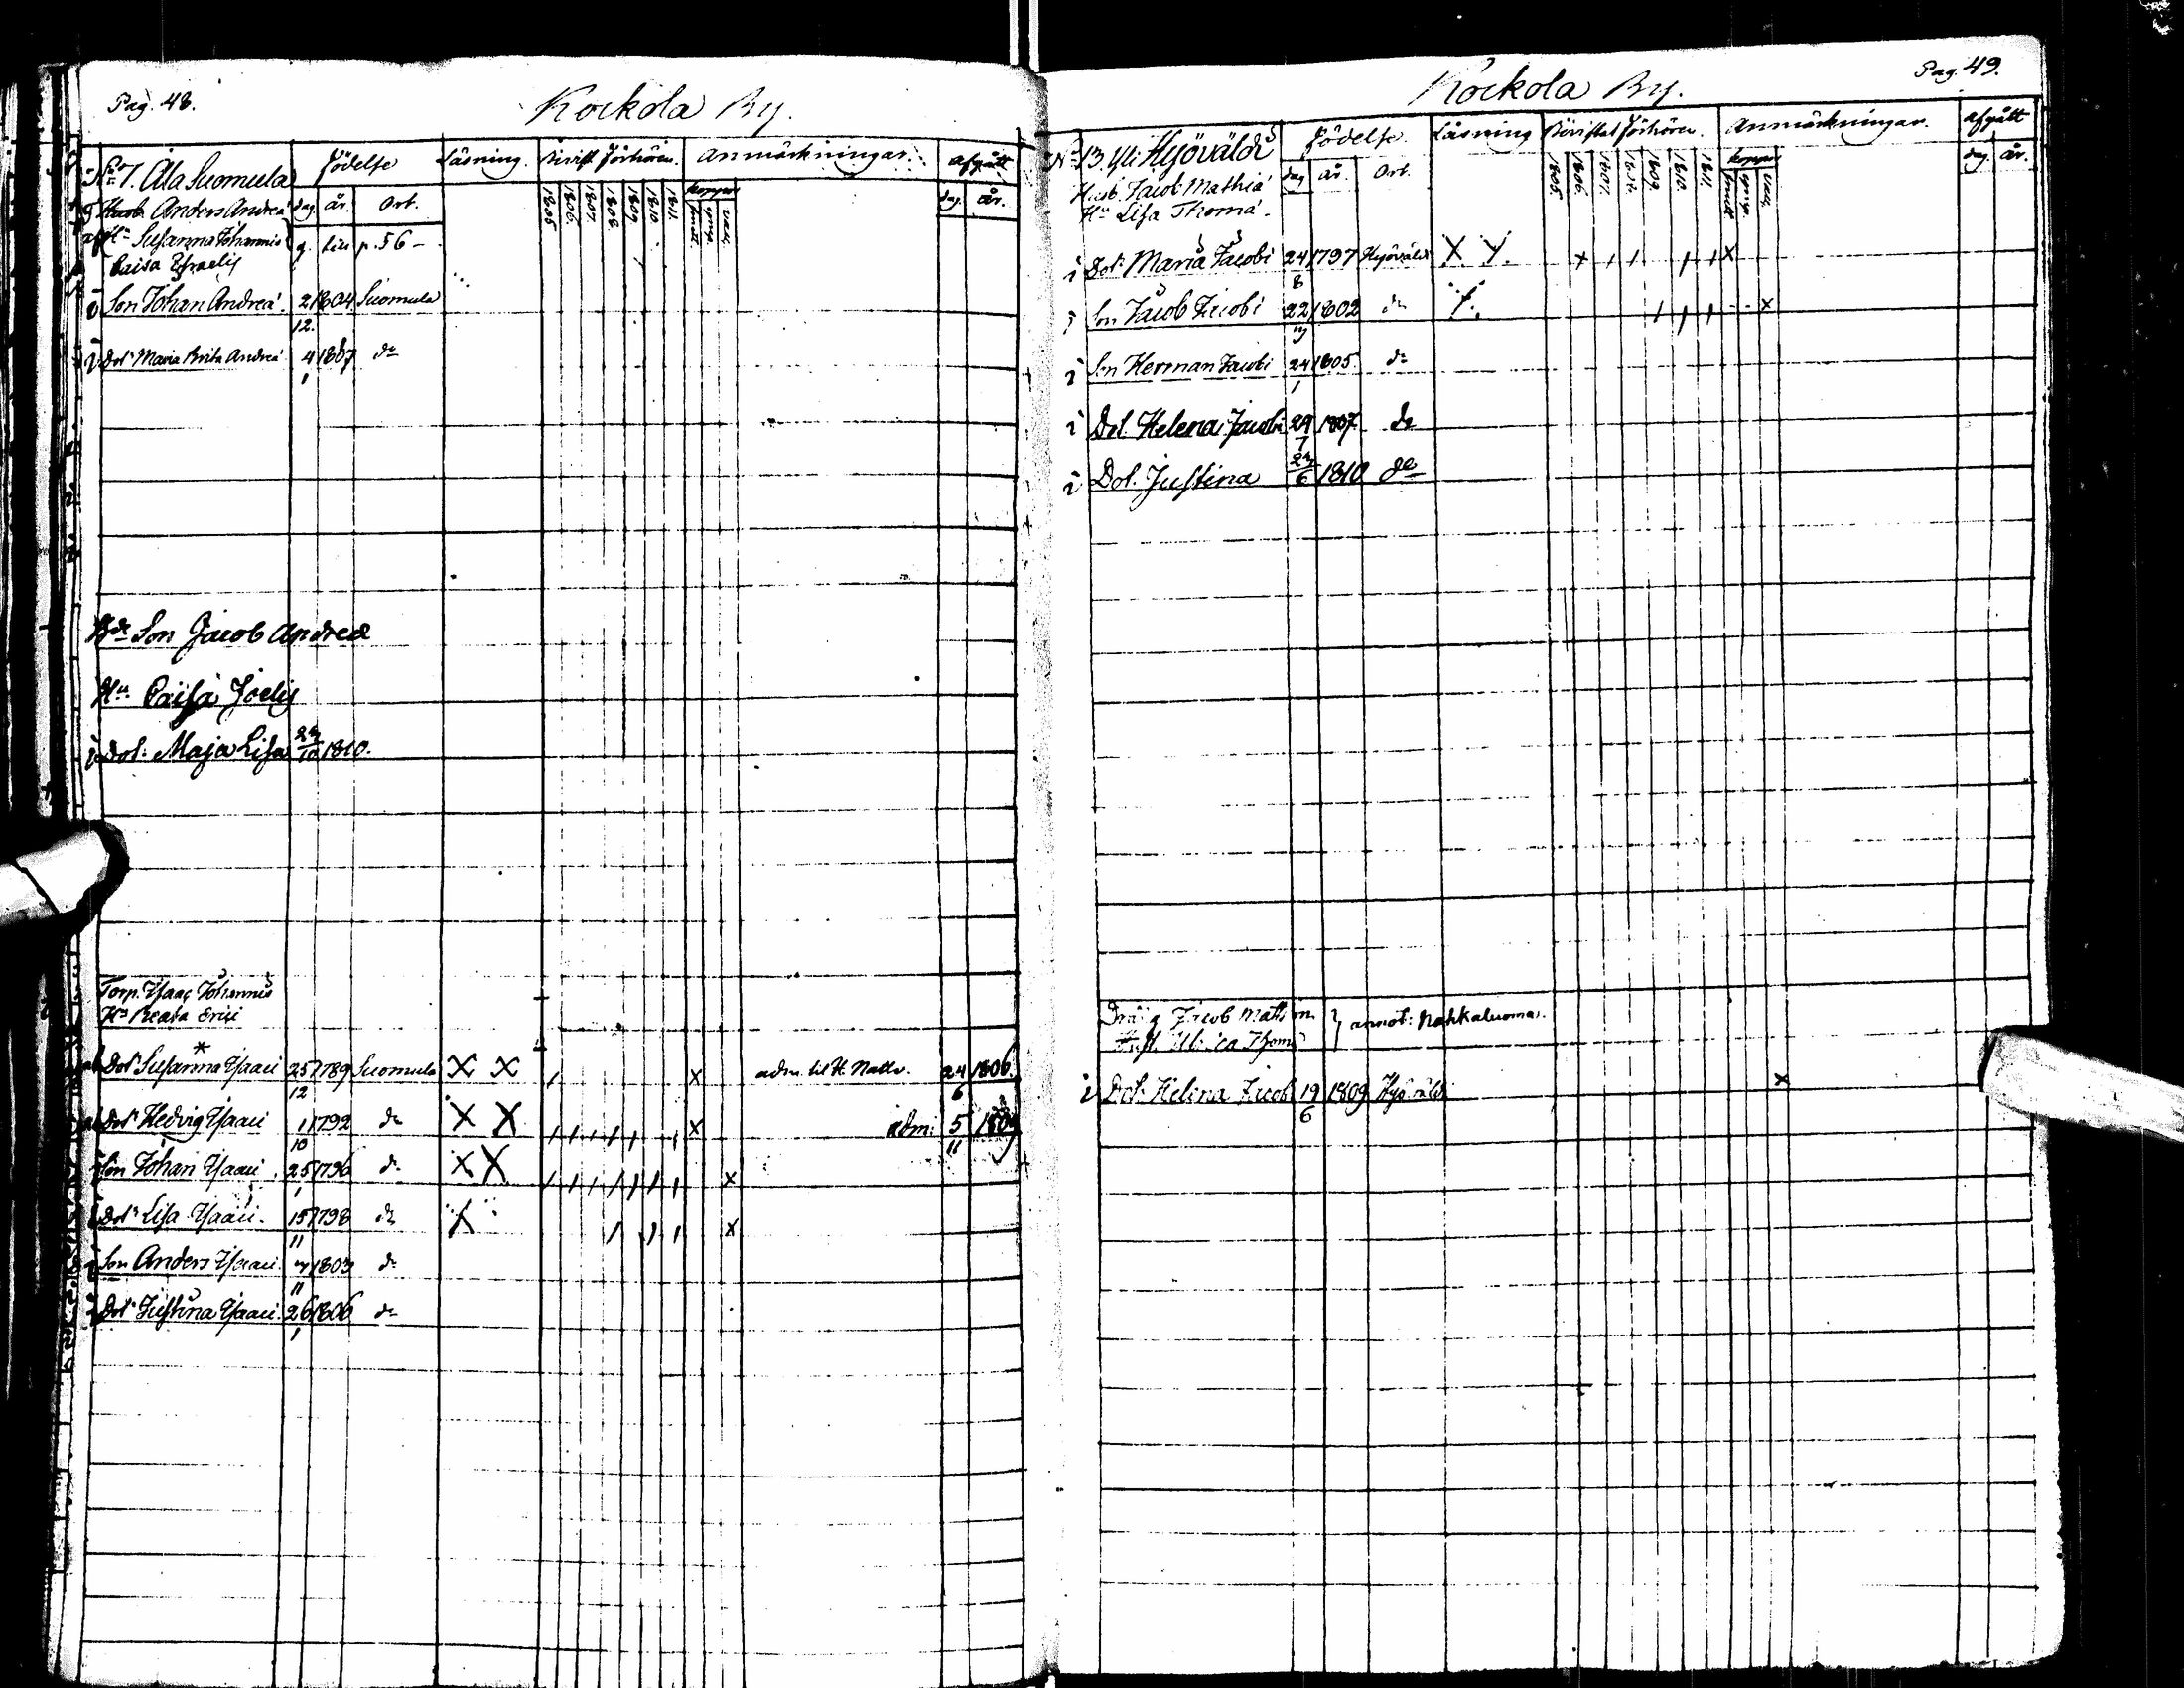 Pag. 48.
Kockola By.
No 7. Ala Suomula
Födelse
Läsning.
Bivist. Förhören.
Anmärkningar.
afgått
dag. år. Ort.
1805 1806. 1807. 1808 1809. 1810 1811.
koppor
vacc.
dag. år.
Husb. Anders Andreæ
Hu Susanna Johannis
g. till p. 56 -
Caisa Israelis
i Son Johan Andreæ. 2/12. 1804. Suomula
i Dotr Maria Brita Andreæ 4/1 1807 do
Bdr Son Jacob Andreæ
Hu Caisa Joelis
i Dot: Maja Lisa 1810.
Torp. Isaac Johannis
Hu Beata Erici
Dotr Susanna Isaaci 25/12 1789 Suomula X X X adm. til H. Nattv. 24/6 1806.
Dotr Hedvig Isaaci 1/10 1792 do X X X adm: 5/11 1809
Son Johan Isaaci 25/1 1796 do X X X
Dotr Lisa Isaaci. 15/11 1798 do X X
Son Anders Isaaci. 1803 do
Dotr Justina Isaaci. 26/1 1806 do
Pag. 49.
Kockola By.
No 13. Yli Hyöväldi
Födelse
Läsning
Bivistat Förhören.
Anmärkningar.
afgått
dag år. Ort.
1805 1806. 1807. 1809. 1810. 1811.
koppor
vacc.
dag. år.
Husb. Jacob Mathiæ
Hu Lisa Thomæ.
i Dotr Maria Jacobi 24/8 1797 Hyöväldi X X. X
i Son Jacob Jacobi 22 1802 do X. X
i Son Herman Jacobi 24/1 1805 do
i Dot. Helena Jacobi 29/7 1807. do
i Dot. Justina 1810 do
Dräng Jacob Matsson } annot: Nahkaluoma.
Hust. Ulrica Thomæ
i Dot. Helena Jacob 19/6 1809 Hyöväldi X